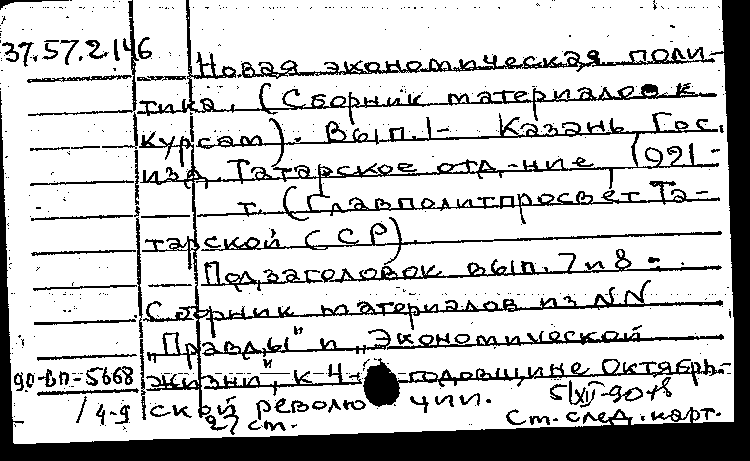 37.57.2.146
Новая экономическая поли-
тика. (Сборник материалов к
курсам). Вып. 1- Казань, Гос.
изд. Татарское отд-ние, 1921-
т. (Главполитпросвет Та-
тарской ССР).
Подзаголовок вып. 7 и 8:
Сборник материалов из NN
„Правды" и „Экономической
90-вп-5668 жизни", к 4-годовщине Октябрь-
/ 4-9 ской револю ции.
27 ст. Ст. след. карт.